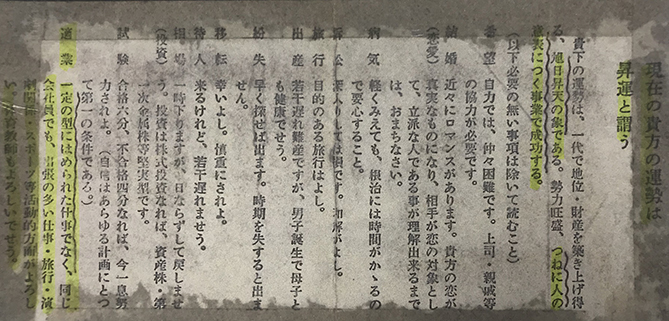 現在の貴方の運勢は
昇運と謂う
貴下の運勢は、一代で地位・財産を築き上げ得
る、旭日昇天の象である。勢力旺盛、つねに人の
意表につく事業で成功する。
(以下必要の無い事項は除いて読むこと)
希望 自力では、仲々困難です。上司・親戚等
の協力が必要です。
結婚 近々にロマンスがあります。貴方の恋が
(恋愛) 真実なものになり、相手が恋の対象とし
て、立派な人である事が理解出来るまで
は、おまちなさい。
病気 軽くみえても、根治には時間がかゝるの
で要心すること。
訴訟 深入りしては損です。和解がよし。
旅行 目的のある旅行はよし。
出産 若干遅れ難産ですが、男子誕生で母子と
も健康でせう。
紛失 早く探せば出ます。時期を失すると出ま
せん。
移転 幸いよし。慎重にされよ。
待人 来るけれど、若干遅れませう。
相場 一時下りますが、日ならずして戻しませ
(投資) う。投資は株式投資なれば、資産株・第
一次金属株等堅実型です。
試験 合格六分、不合格四分なれば、今一息努
力されよ。(自信はあらゆる計画にとつ
て第一の条件である。)
適業 一定の型にはめられた仕事でなく、同じ
会社員でも、出張の多い仕事・旅行・演
劇関係・ ーツ等活動的方面がよろし
い。 教師もよろしいでせう。